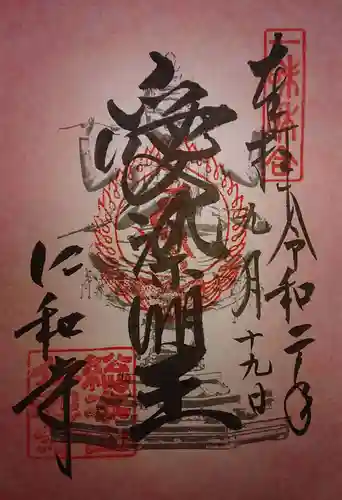 奉拝
令和二年
九月
十九日
愛染明王
仁和寺